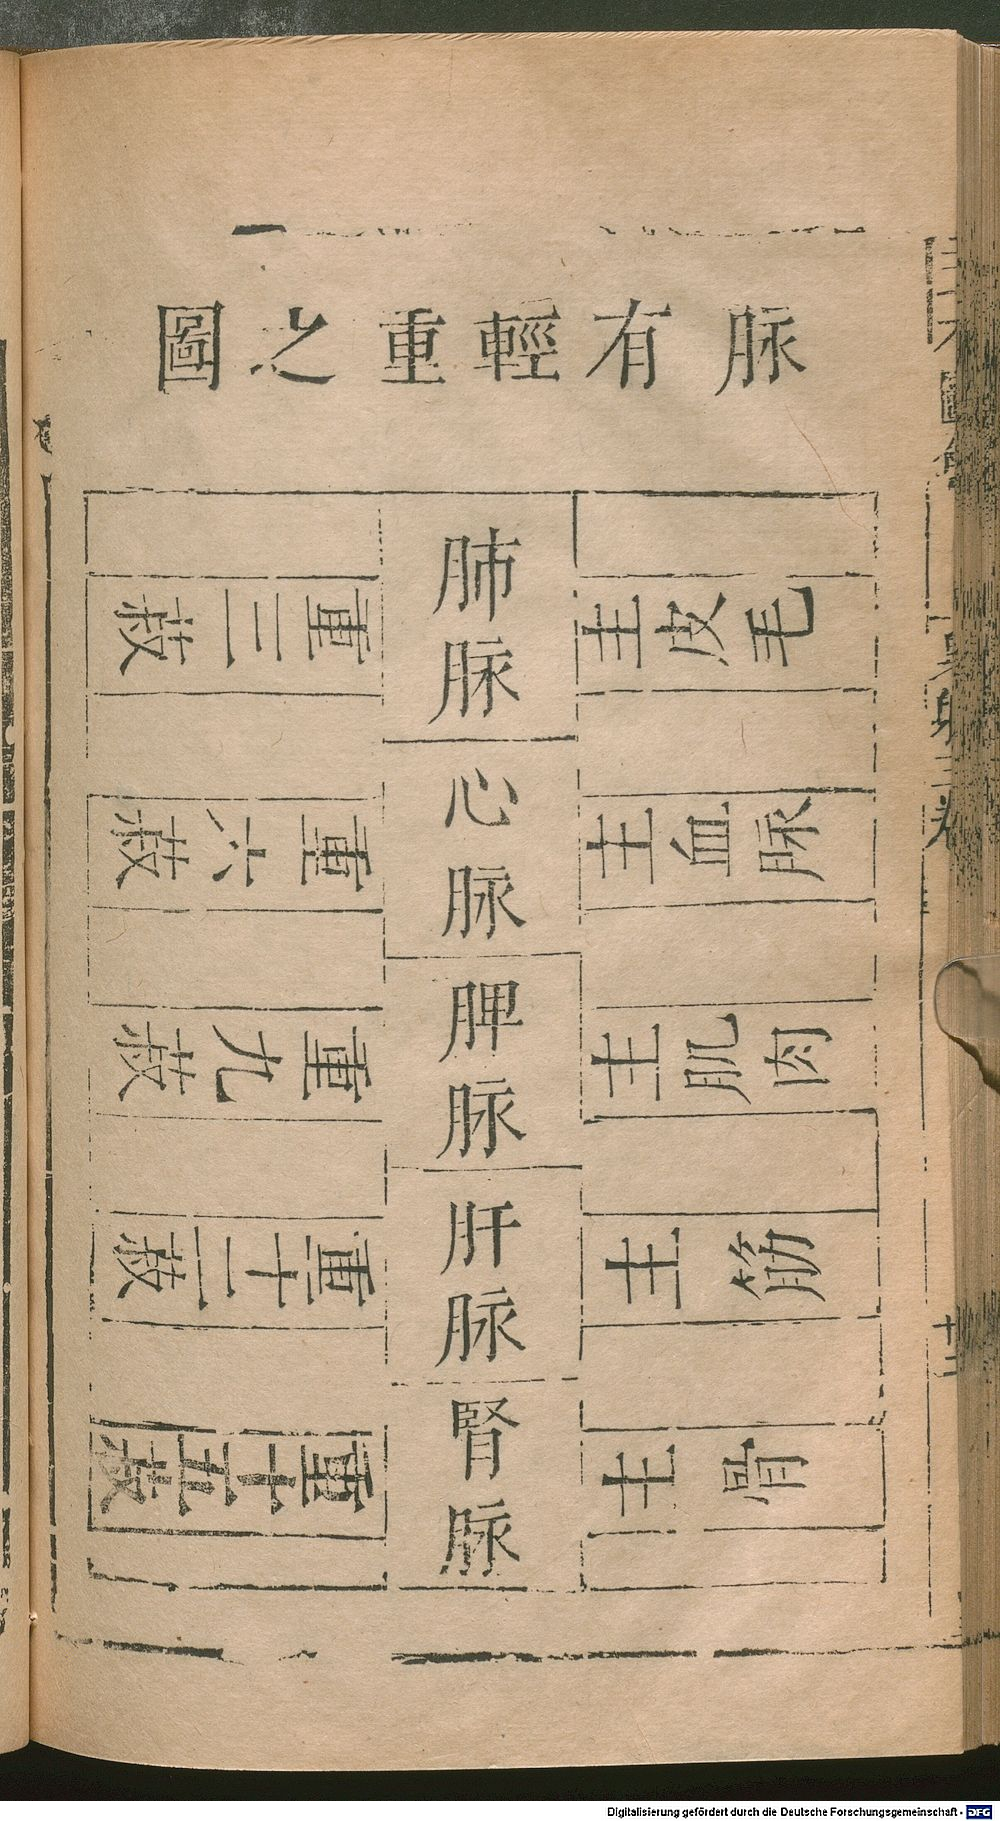 脉有輕重之圖
肺脉
主皮毛
重三菽
心脉
主血脉
重六菽
脾脉
主肌肉
重九菽
肝脉
主筋
重十二菽
腎脉
主骨
重十五菽
圖會
三卷
十三
Digitalisierung gefördert durch die Deutsche Forschungsgemeinschaft - DFG